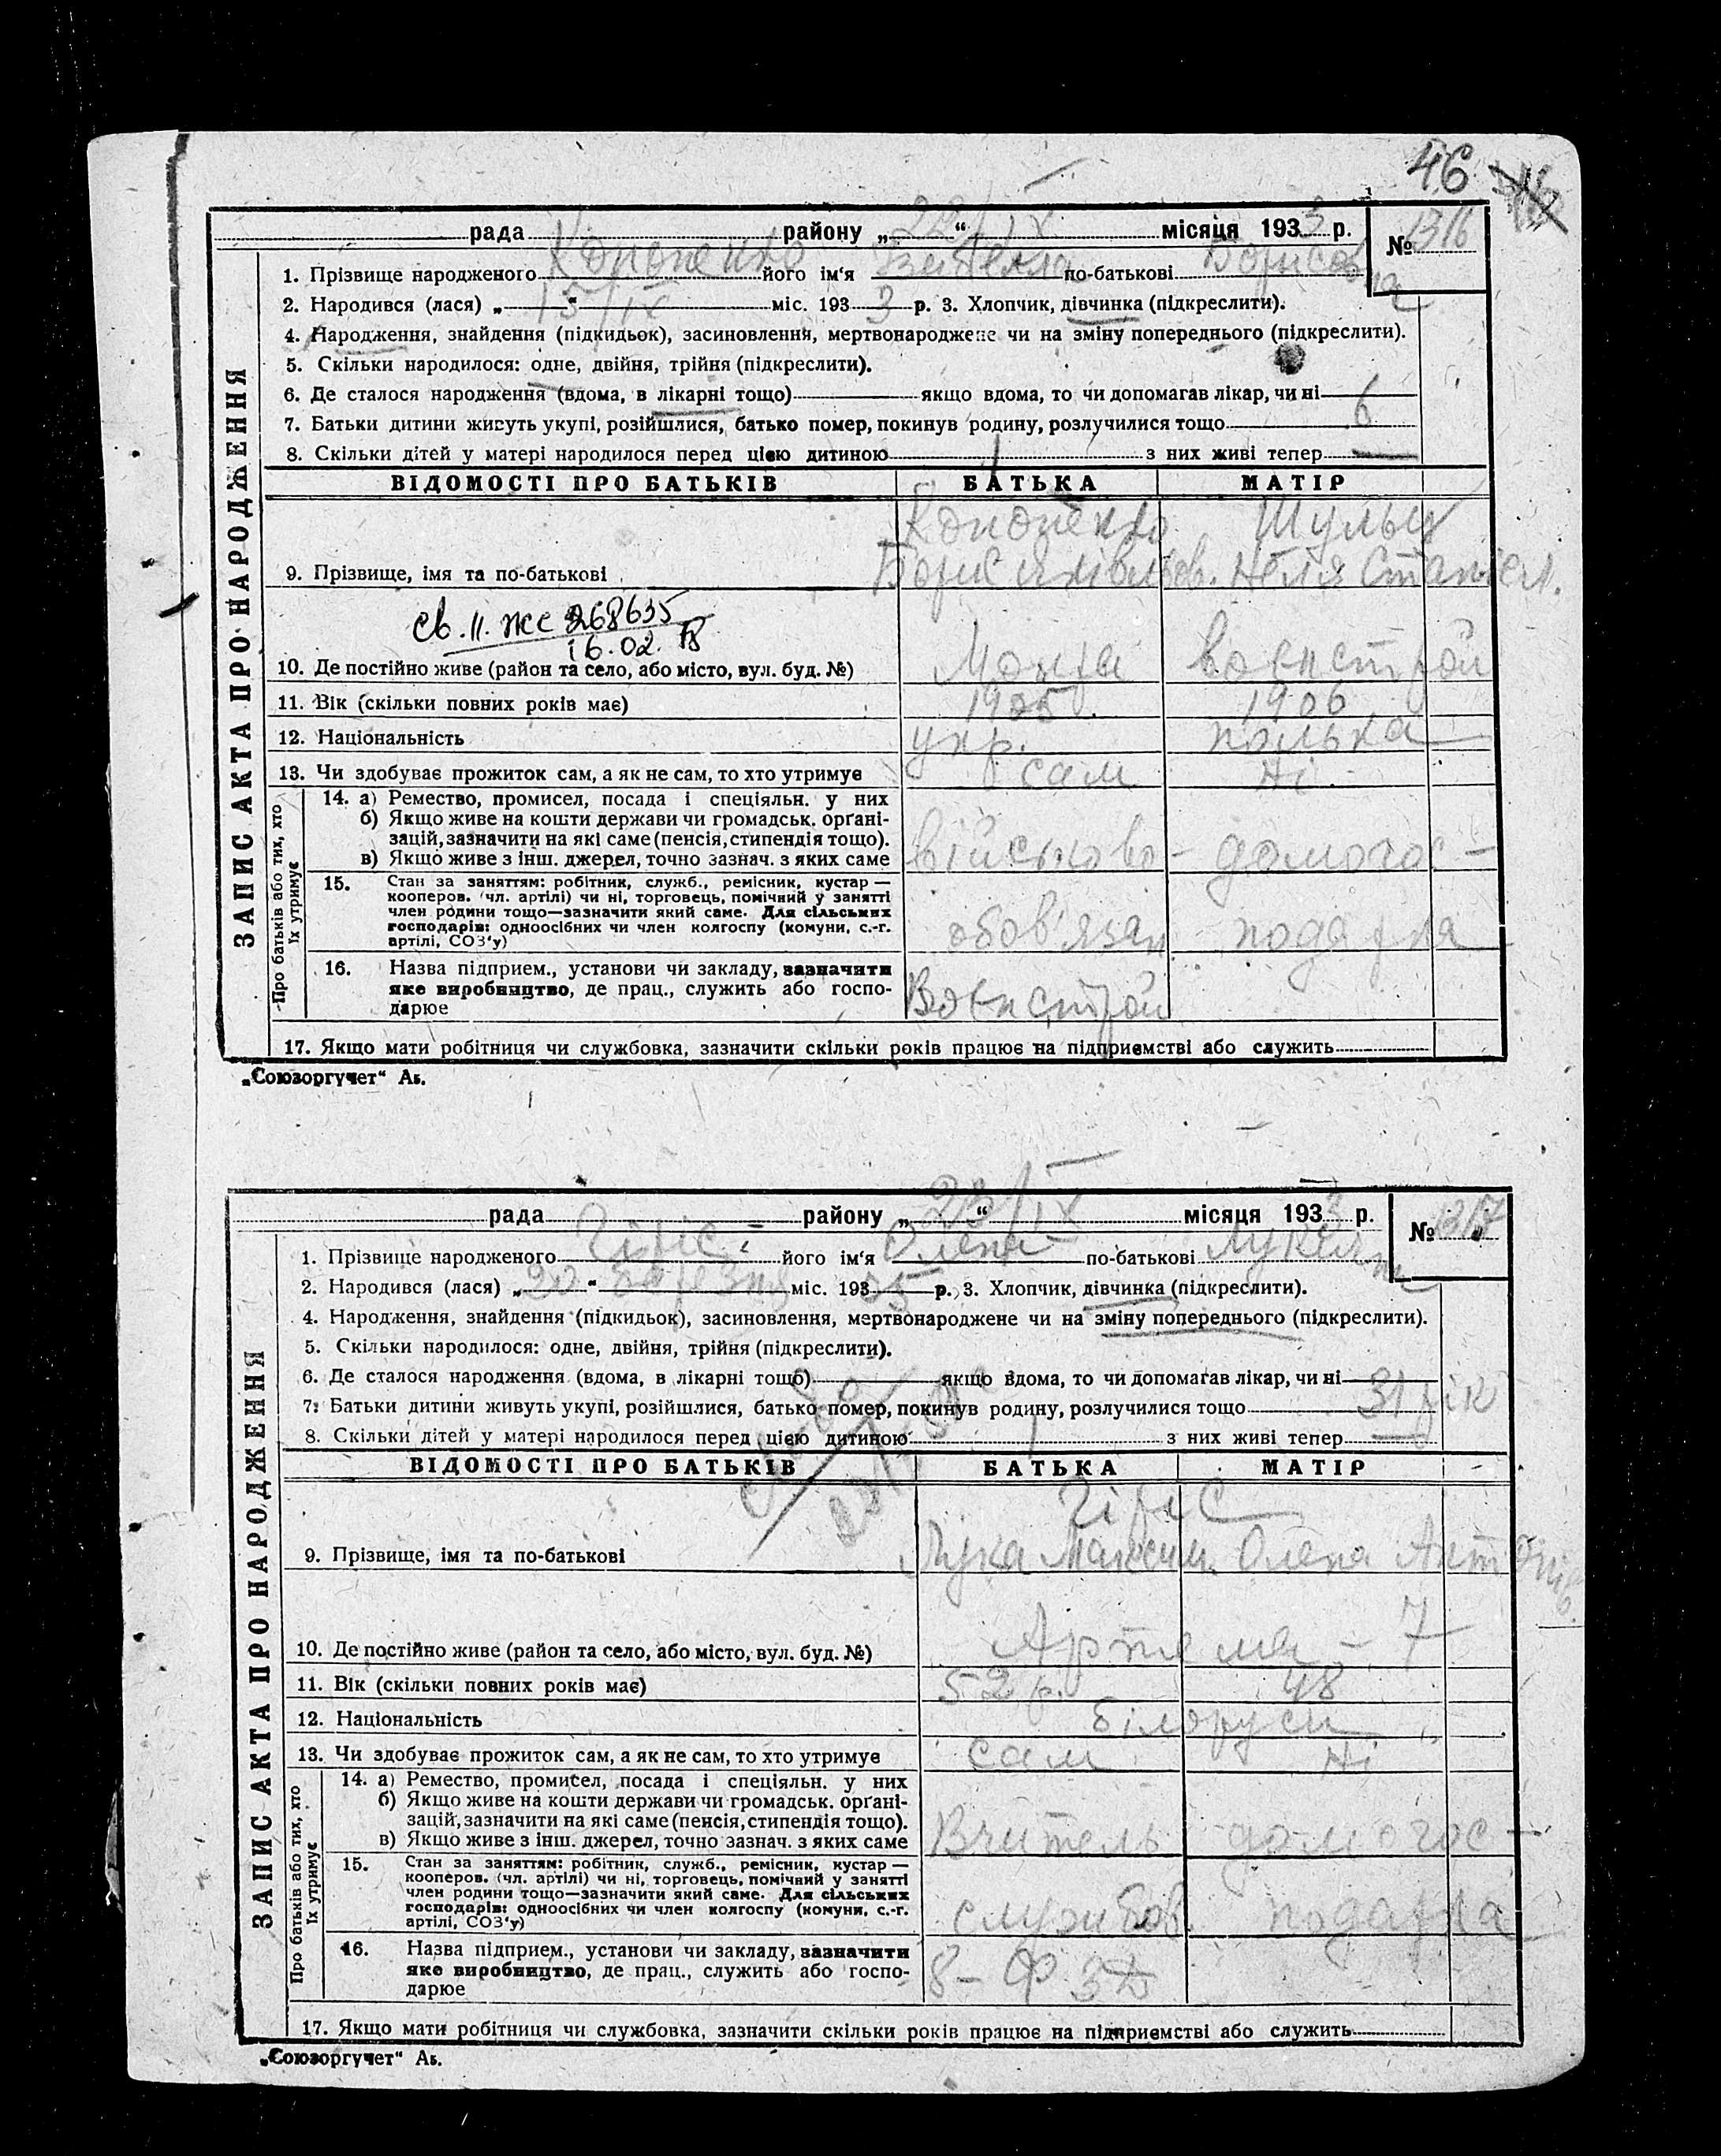 46
рада районом „ 22/IX “ місяця 1933 р. № 1316
1. Прізвище народженого Кононенко його ім‘я Ізабелла по-батькові Борисовна
2. Народився (лася) „ 15/IX “ міс. 1933 р. 3. Хлопчик, дівчинка (підкреслити).
4. Народження, знайдення (підкидьок), засиновлення, мертвонароджене чи на зміну попереднього (підкреслити).
5. Скільки народилося: одне, двійня, трійня (підкреслити).
6. Де сталося народження (вдома, в лікарні тощо) якщо вдома, то чи допомагав лікар, чи ні
7. Батьки дитини живуть укупі, розійшлися, батько помер, покинув родину, розлучилися тощо 6
8. Скільки дітей у матері народилося перед цією дитиною 1 з них живі тепер —
ВІДОМОСТІ ПРО БАТЬКІВ БАТЬКА МАТІР
Кононенко Шульц
9. Прізвище, імя та по-батькові Борис Неля Станісл.
св. II. ЖС 268635
16.02.
10. Де постійно живе (район та село, або місто, вул. буд. №) Военстрой
11. Вік (скільки повних років має) 1905 1906
12. Національність укр. полька
13. Чи здобуває прожиток сам, а як не сам, то хто утримує сам ні
14. а) Ремество, промисел, посада і спеціяльн. у них
б) Якщо живе на кошти держави чи громадськ. орґані-
зацій, зазначити на які саме (пенсія, стипендія тощо).
в) Якщо живе з інш. джерел, точно зазнач. з яких саме військово- домогос-
15. Стан за заняттям: робітник, служб., ремісник, кустар —
кооперов. (чл. артілі) чи ні, торговець, помічний у занятті
член родини тощо—зазначити який саме. Для сільських
господарів: одноосібних чи член колгоспу (комуни, с.-г.
артілі, СОЗ‘у) обов'язан подарка
16. Назва підприєм., установи чи закладу, зазначити
яке виробництво, де прац., служить або госпо-
дарює Военстрой
17. Якщо мати робітниця чи службовка, зазначити скільки років працює на підприємстві або служить
ЗАПИС АКТА ПРО НАРОДЖЕННЯ
Про батьків або тих, хто
їх утримує
„Союзоргучет“ Аб.
рада району „ 23/IX “ місяця 1933 р. № 1317
1. Прізвище народженого Гіріс його ім‘я Олена по-батькові
2. Народився (лася) „ 20 “ березня міс. 193 р. 3. Хлопчик, дівчинка (підкреслити).
4. Народження, знайдення (підкидьок), засиновлення, мертвонароджене чи на зміну попереднього (підкреслити).
5. Скільки народилося: одне, двійня, трійня (підкреслити).
6. Де сталося народження (вдома, в лікарні тощо) якщо вдома, то чи допомагав лікар, чи ні
7. Батьки дитини живуть укупі, розійшлися, батько помер, покинув родину, розлучилися тощо 31 рік
8. Скільки дітей у матері народилося перед цією дитиною з них живі тепер
ВІДОМОСТІ ПРО БАТЬКІВ БАТЬКА МАТІР
Гіріс
9. Прізвище, імя та по-батькові Лука Максим. Олена Антонів.
10. Де постійно живе (район та село, або місто, вул. буд. №) Артема - 7
11. Вік (скільки повних років має) 52 р. 48
12. Національність білоруси
13. Чи здобуває прожиток сам, а як не сам, то хто утримує сам ні
14. а) Ремество, промисел, посада і спеціяльн. у них
б) Якщо живе на кошти держави чи громадськ. орґані-
зацій, зазначити на які саме (пенсія, стипендія тощо).
в) Якщо живе з інш. джерел, точно зазнач. з яких саме Вчитель домогос-
15. Стан за заняттям: робітник, служб., ремісник, кустар —
кооперов. (чл. артілі) чи ні, торговець, помічний у занятті
член родини тощо—зазначити який саме. Для сільських
господарів: одноосібних чи член колгоспу (комуни, с.-г.
артілі, СОЗ‘у) службов. подарка
16. Назва підприєм., установи чи закладу, зазначити
яке виробництво, де прац., служить або госпо-
дарює 8 -
17. Якщо мати робітниця чи службовка, зазначити скільки років працює на підприємстві або служить
ЗАПИС АКТА ПРО НАРОДЖЕННЯ
Про батьків або тих, хто
їх утримує
„Союзоргучет“ Аб.